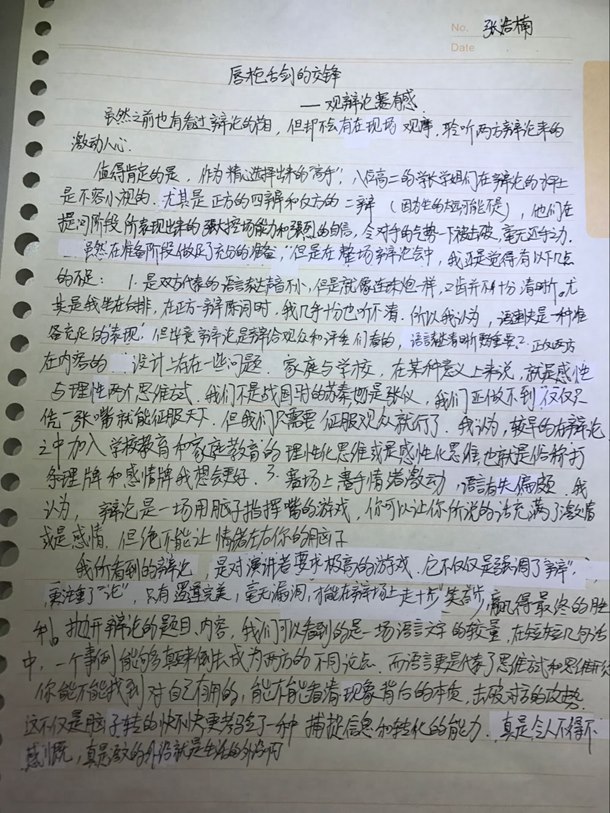 No. 张浩楠
Date
唇枪舌剑的交锋
——观辩论赛有感
虽然之前也有看过辩论的节目，但却不会有在现场观摩，聆听两方辩论来的
激动人心。
值得肯定的是，作为精心选择出来的"高手"，八位高二的学长学姐们在辩论的水平上
是不容小视的。尤其是正方的四辩和反方的二辩（因为坐的太远可能不是），他们在
提问阶段所表现出来的强大控场能力和强烈的自信，令对手的气势一下被击破，毫无还手之力。
虽然在准备阶段做足了充分的准备，但是在整场辩论会中，我还是觉得有以下几点
的不足：1.是双方代表的语言表达声音不小，但是就像连珠炮一样，口齿并不十分清晰。尤
其是我坐在后排，在正方一辩陈词时，我几乎一分也听不清。所以我认为，语速快是一种准
备充足的表现，但毕竟辩论是辩给观众和评委们看的，语言表达清晰更重要。2.正反两方
在内容的设计上存在一些问题。家庭与学校，在某种意义上来说，就是感性
与理性两个思维方式。我们不是战国时的苏秦也是张仪，我们正做不到仅仅只
凭一张嘴就能征服天下，但我们只需要征服观众就行了。我认为，较早的在辩论
之中加入学校教育和家庭教育的理性化思维或是感性化思维，也就是俗称打
条理牌和感情牌我想会更好。3.赛场上選手情绪激动，语言有失偏颇。我
认为，辩论是一场用脑子指挥嘴的游戏，你可以让你所说的话充满了激情
或是感情，但绝不能让情绪左右你的脑子。
我所看到的辩论，是对演讲者要求极高的游戏，它不仅仅是强调了"辩"，
更注重了"论"，只有逻辑完美，毫无漏洞，才能在辩论场上走十步"笑"，赢得最终的胜
利。抛开辩论的题目、内容，我们可以看到的是一场语言文字的较量，在短短几句话
中，一个事例能够多真来倒去成为两方的不同论点，而语言更是代表了思维方式和思维
你能不能找到对自己有用的，能不能看清现象背后的本质，击破对方的攻势。
这不仅是脑子转的快不快更考验了一种捕捉信息和转化的能力。真是令人不得不
感慨，真是语文的外沿就是生活的外沿啊